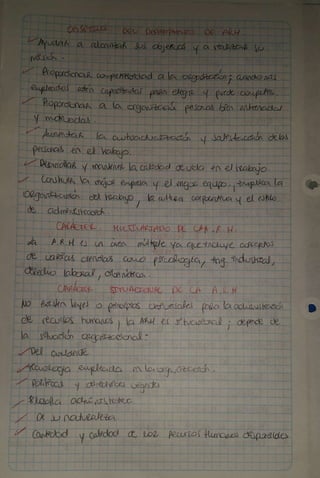 OBJETIVO DEL DEPARTAMENTO DE ARH
Ayudar a alcanzar sus objetivos y a realizar su
misión.
Proporcionar competitividad a la organización; cuando sus
empleados estén capacitados para elegir y puede competir.
Proporcionar a la organización personas bien entrenadas
y motivadas.
Aumentar la autoactualización y satisfacción de las
personas en el trabajo.
Desarrollar y mantener la calidad de vida en el trabajo.
Construir la mejor empresa y el mejor equipo, impulsa la
organización del trabajo, la cultura corporativa y el estilo
de administración.
CARÁCTER MULTIVARIADO DE LA A.R.H.
La A.R.H es un área múltiple ya que incluye conceptos
de varias ciencias como psicología, Ing. Industrial,
derecho laboral, cibernética.
CARÁCTER SITUACIONAL DE LA A.R.H
No existen leyes o principios universales para la administración
de recursos humanos, la ARH es situacional; depende de
la situación organizacional:
Del ambiente
Tecnología empleada en la organización.
Políticas y directrices vigentes
Filosofía administrativa
De su naturaleza
Cantidad y calidad de los Recursos Humanos disponibles